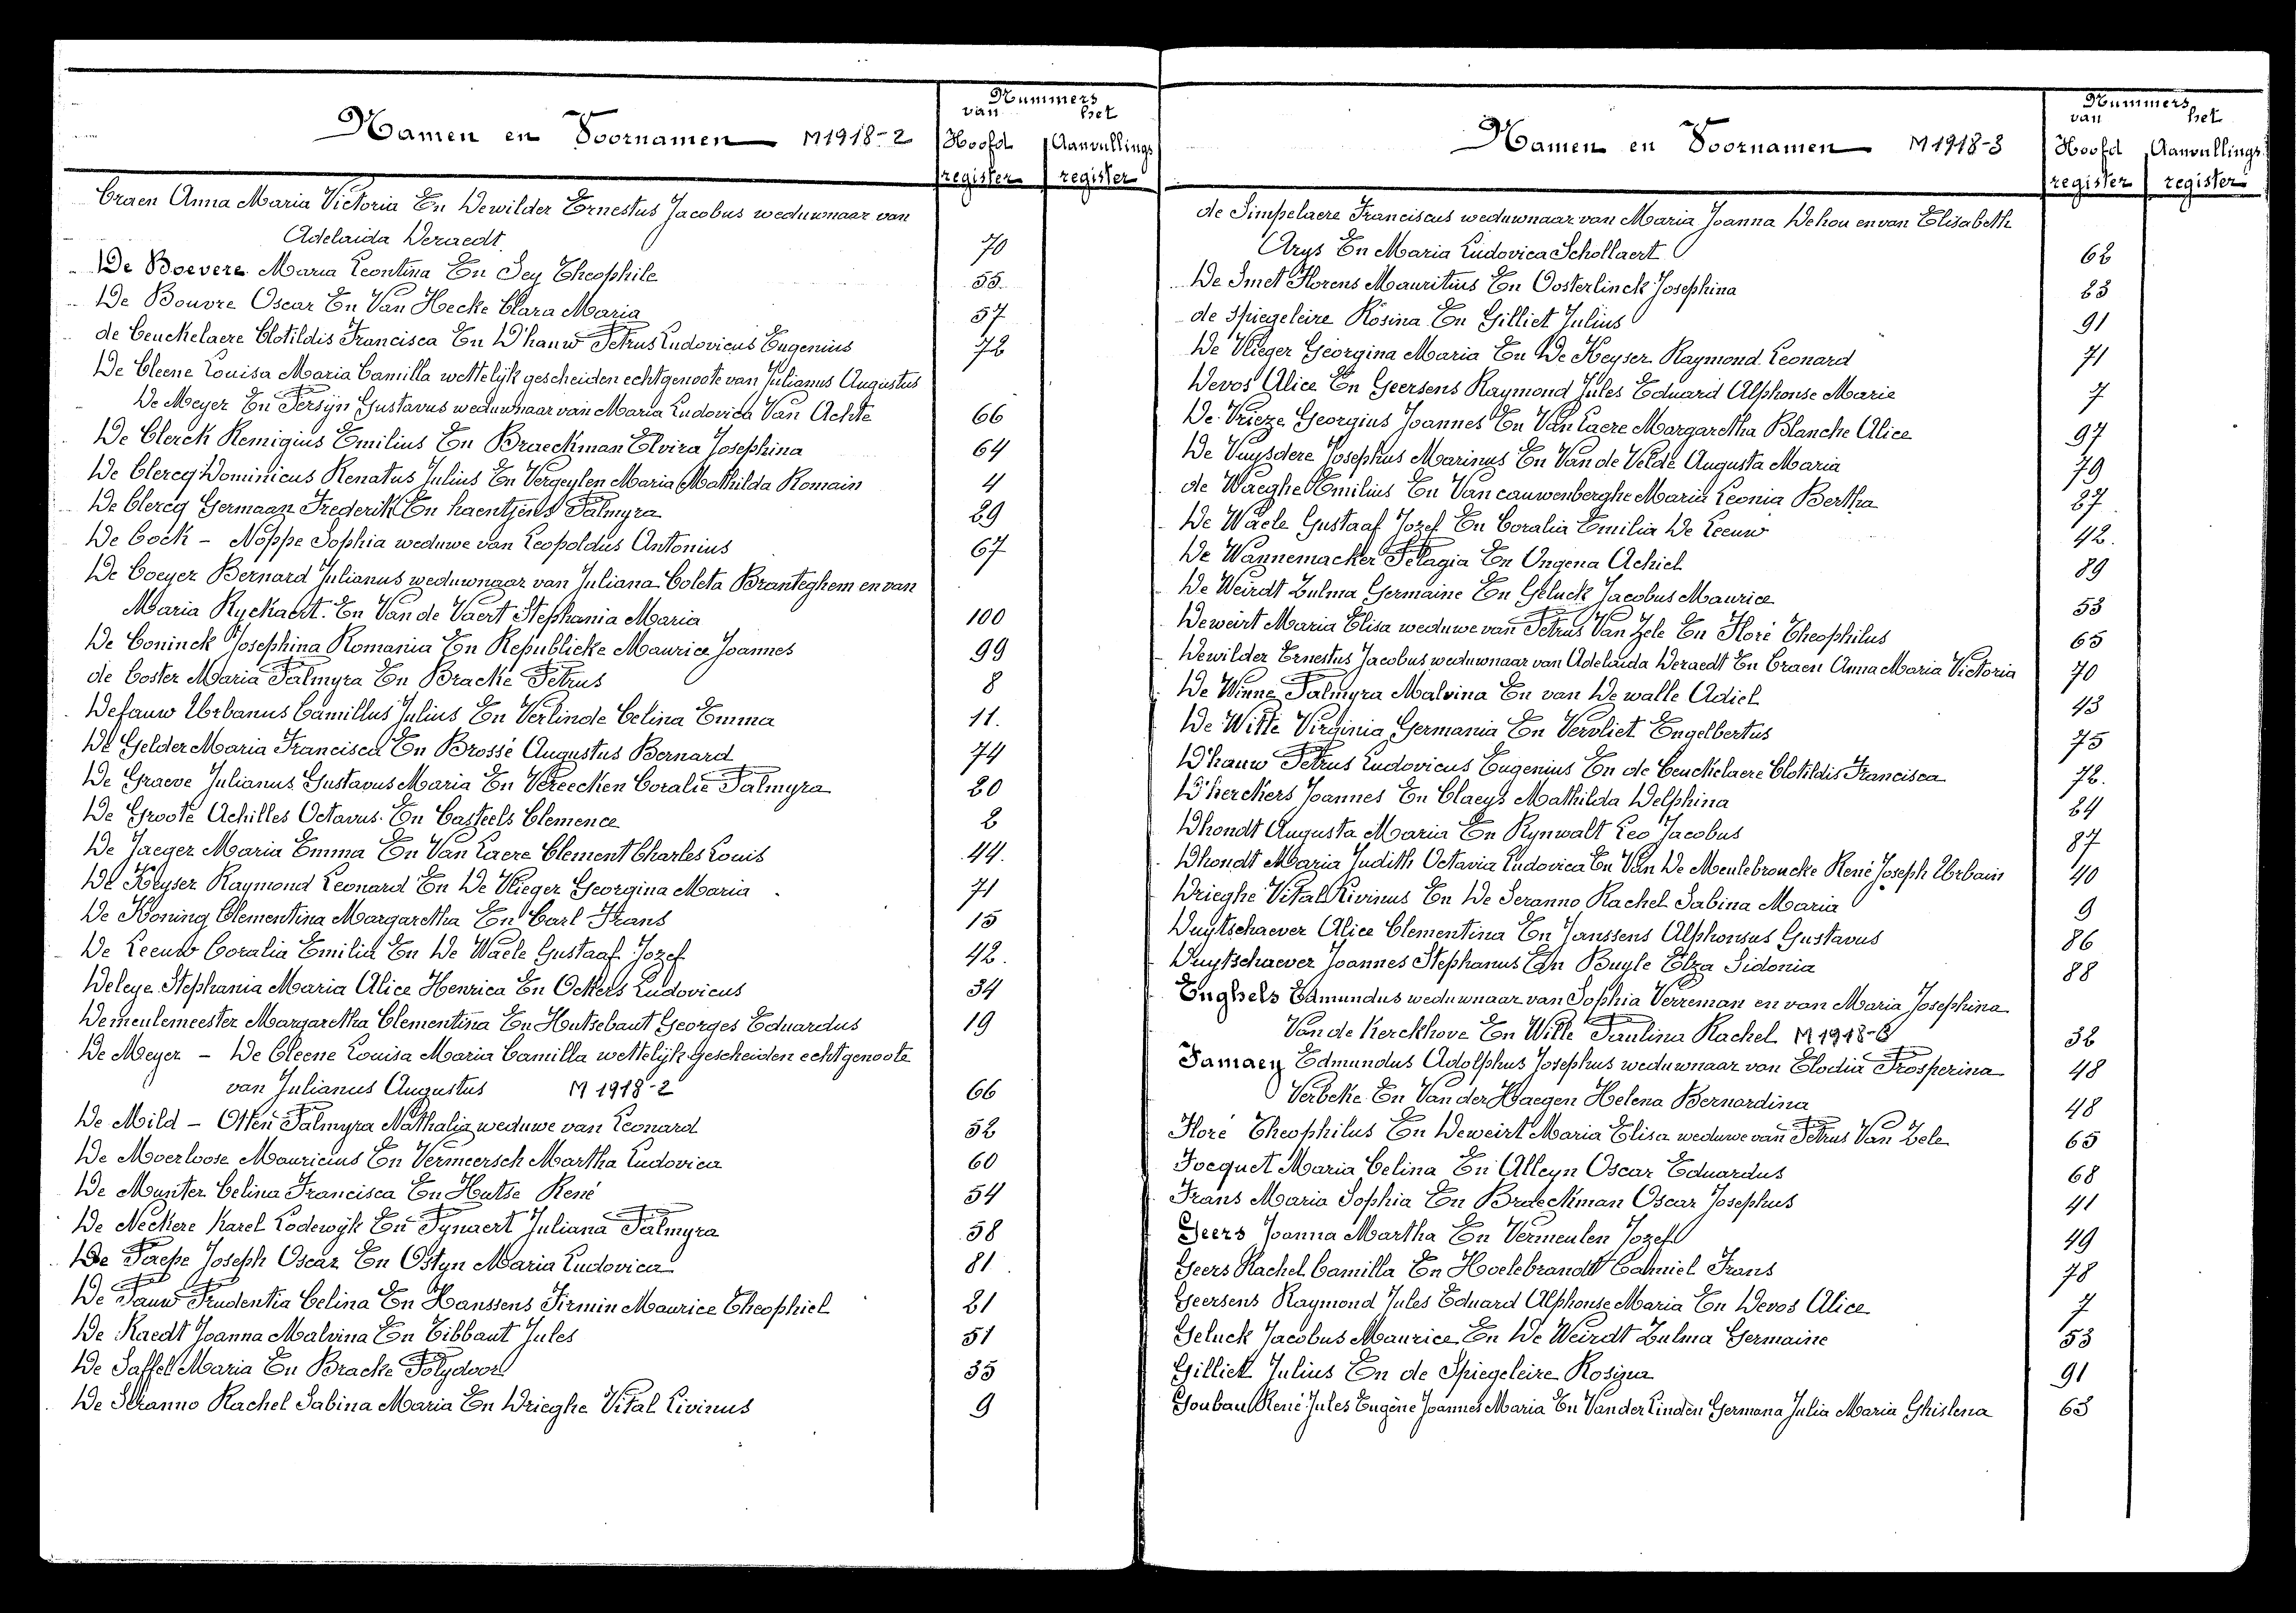 Namen en Voornamen M1918-2
Nummers
van het
Hoofd Aanvullings
register register
Craen Anna Maria Victoria En Dewilder Ernestus Jacobus weduwnaar van
Adelaida Deraedt 70
De Boevere Maria Leontina En Sey Theophile 55
De Bouvre Oscar En Van Hecke Clara Maria 57
de Ceuckelaere Clotildis Francisca En D'hauw Petrus Ludovicus Eugenius 72
De Cleene Louisa Maria Camilla wettelijk gescheiden echtgenoote van Julianus Augustus
De Meyer En Persijn Gustavus weduwnaar van Maria Ludovica Van Achte 66
De Clerck Remigius Emilius En Braeckman Elvira Josephina 64
De Clercq Dominicus Renatus Julius En Vergeylen Maria Mathilda Romain 4
De Clercq Germaan Frederik En haentjens Palmyra 29
De Cock - Noppe Sophia weduwe van Leopoldus Antonius 67
De Coeyer Bernard Julianus weduwnaar van Juliana Coleta Branteghem en van
Maria Ryckaert. En Van de Vaert Stephania Maria 100
De Coninck Josephina Romania En Republicke Maurice Joannes 99
de Coster Maria Palmyra En Bracke Petrus 8
Defauw Urbanus Camillus Julius En Verlinde Celina Emma 11.
De Gelder Maria Francisca En Brossé Augustus Bernard 74
De Graeve Julianus Gustavus Maria En Vereecken Coralie Palmyra 20
De Groote Achilles Octavus. En Casteels Clemence 2
De Jaeger Maria Emma En Van Laere Clement Charles Louis 44.
De Keyser Raymond Leonard En De Vlieger Georgina Maria 71
De Koning Clementina Margaretha En Carl Frans 15
De Leeuw Coralia Emilia En De Waele Gustaaf Jozef 42.
Deleye Stephania Maria Alice Henrica En Ockers Ludovicus 34
Demeulemeester Margaretha Clementina En Hutsebaut Georges Eduardus 19
De Meyer - De Cleene Louisa Maria Camilla wettelijk gescheiden echtgenoote
van Julianus Augustus M 1918-2 66
De Mild - Otten Palmyra Nathalia weduwe van Leonard 52
De Moerloose Mauricius En Vermeersch Martha Ludovica 60
De Munter Celina Francisca En Hutse René 54
De Neckere Karel Lodewijk En Pynaert Juliana Palmyra 58
De Paepe Joseph Oscar En Ostyn Maria Ludovica 81
De Pauw Prudentia Celina En Hanssens Firmin Maurice Theophiel 21
De Raedt Joanna Malvina En Tibbaut Jules 51
De Saffel Maria En Bracke Polydoor 35
De Seranno Rachel Sabina Maria En Drieghe Vital Livinus 9
Namen en Voornamen M1918-3
Nummers
van het
Hoofd Aanvullings
register register
de Simpelaere Franciscus weduwnaar van Maria Joanna Dehou en van Elisabeth
Arys En Maria Ludovica Schollaert 62
De Smet Florens Mauritius En Oosterlinck Josephina 23
de Spiegeleire Rosina En Gilliet Julius 91
De Vlieger Georgina Maria En De Keyser Raymond Leonard 71
Devos Alice En Geersens Raymond Jules Eduard Alphonse Marie 7
De Vrieze Georgius Joannes En Van Laere Margaretha Blanche Alice 97
De Vuysdere Josephus Marinus En Van de Velde Augusta Maria 79
de Waeghe Emilius En Van cauwenberghe Maria Leonia Bertha 27
De Waele Gustaaf Jozef En Coralia Emilia De Leeuw 42.
De Wannemacker Pelagia En Ongena Achiel 89
De Weirdt Zulma Germaine En Geluck Jacobus Maurice 53
Deweirt Maria Elisa weduwe van Petrus Van Zele En Floré Theophilus 65
Dewilder Ernestus Jacobus weduwnaar van Adelaida Deraedt En Craen Anna Maria Victoria 70
De Winne Palmyra Malvina En van De walle Adiel 43
De Witte Virginia Germania En Vervliet Engelbertus 75
D'hauw Petrus Ludovicus Eugenius En de Ceuckelaere Clotildis Francisca 72.
D'herckers Joannes En Claeys Mathilda Delphina 24
Dhondt Augusta Maria En Rynwalt Leo Jacobus 87
Dhondt Maria Judith Octavia Ludovica En Van De Meulebroucke René Joseph Urbain 40
Drieghe Vital Livinus En De Seranno Rachel Sabina Maria 9
Duytschaever Alice Clementina En Janssens Alphonsus Gustavus 86
Duytschaever Joannes Stephanus En Buyle Elza Sidonia 88
Enghels Edmundus weduwnaar van Sophia Verreman en van Maria Josephina
Van de Kerckhove En Wille Paulina Rachel M1918-3 32
Famaey Edmundus Adolphus Josephus weduwnaar van Elodia Prosperina 48
Verbeke En Van der Haegen Helena Bernardina 48
Floré Theophilus En Deweirt Maria Elisa weduwe van Petrus Van Zele 65
Focquet Maria Celina En Alleyn Oscar Eduardus 68
Frans Maria Sophia En Braeckman Oscar Josephus 41
Geers Joanna Martha En Vermeulen Jozef 49
Geers Rachel Camilla En Hoelebrandt Camiel Frans 78
Geersens Raymond Jules Eduard Alphonse Maria En Devos Alice 7
Geluck Jacobus Maurice En De Weirdt Zulma Germaine 53
Gilliet Julius En de Spiegeleire Rosina 91
Goubau René Jules Eugène Joannes Maria En Van der Linden Germana Julia Maria Ghislena 63